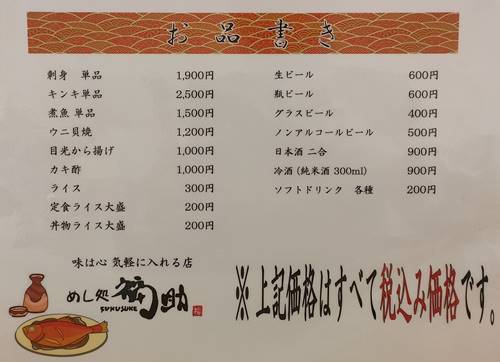 お品書き
刺身 単品 1,900円
キンキ単品 2,500円
煮魚 単品 1,500円
ウニ貝焼 1,200円
目光から揚げ 1,000円
カキ酢 1,000円
ライス 300円
定食ライス大盛 200円
丼物ライス大盛 200円
生ビール 600円
瓶ビール 600円
グラスビール 400円
ノンアルコールビール 500円
日本酒 二合 900円
冷酒 (純米酒 300ml) 900円
ソフトドリンク 各種 200円
味は心 気軽に入れる店
めし処 福助
FUKUSUKE
※上記価格はすべて税込み価格です。